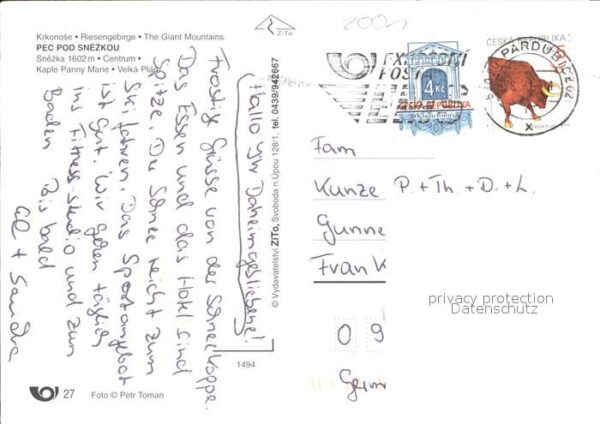 2001
Krkonoše • Riesengebirge • The Giant Mountains
PEC POD SNĚŽKOU
Sněžka 1602 m • Centrum •
Kaple Panny Marie • Velká Pláň
ZiTo
Hallo Ihr Daheimgebliebene!
Frostige Grüsse von der Schneekoppe.
Das Essen und das Hotel sind
Spitze. Der Schnee reicht zum
Ski fahren. Das Sportangebot
ist gut. Wir gehen täglich
ins Fitness-studio und zum
Baden. Bis bald
+ Sandra
© Vydavatelství ZITo, Svoboda n.Úpou 128/1. tel. 0439/942667
1494
27 Foto © Petr Toman
4 Kč
ČESKÁ REPUBLIKA
ČESKÁ REPUBLIKA
PARDUBICE 02
Fam
Kunze P. + Th + D. + L.
Gunne
Frank
0 9
privacy protection
Datenschutz